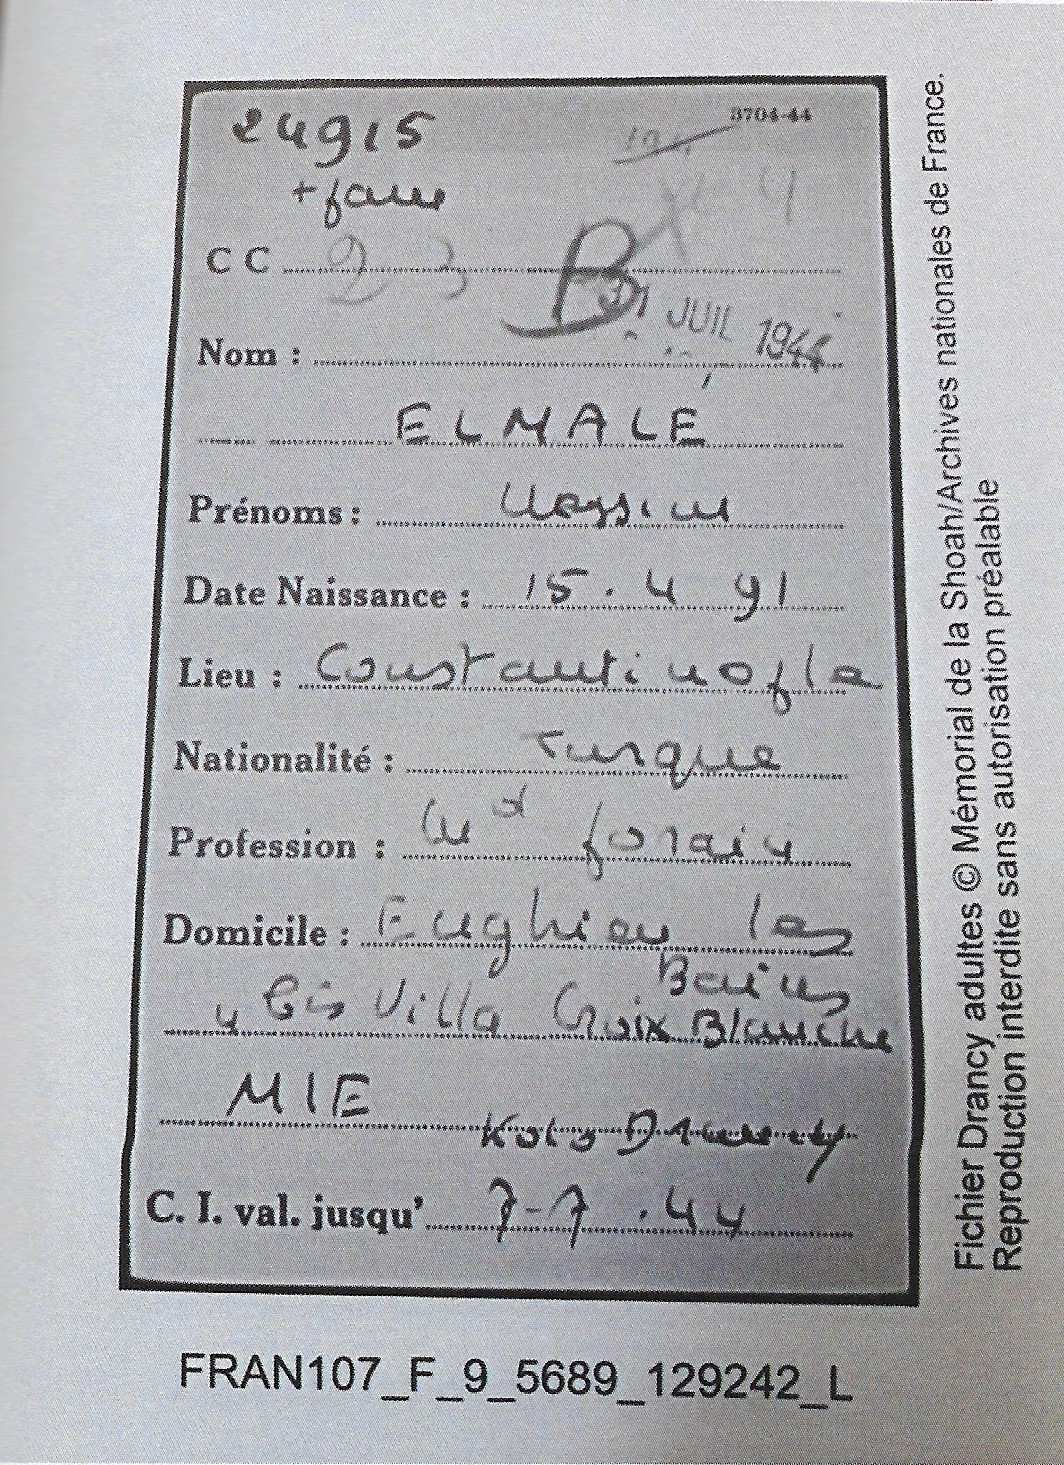 24915
3704-44
+ fam
CC 23 B
31 JUIL 1944
Nom :
ELMALÉ
Prénoms : Nessim
Date Naissance : 15.4 91
Lieu : Constantinople
Nationalité : Turque
Profession : Md forain
Domicile : Enghien les
Bains
4 bis Villa Croix Blanche
MIE
Drancy
C. I. val. jusqu' 7-7.44
FRAN107_F_9_5689_129242_L
Fichier Drancy adultes © Mémorial de la Shoah/Archives nationales de France.
Reproduction interdite sans autorisation préalable